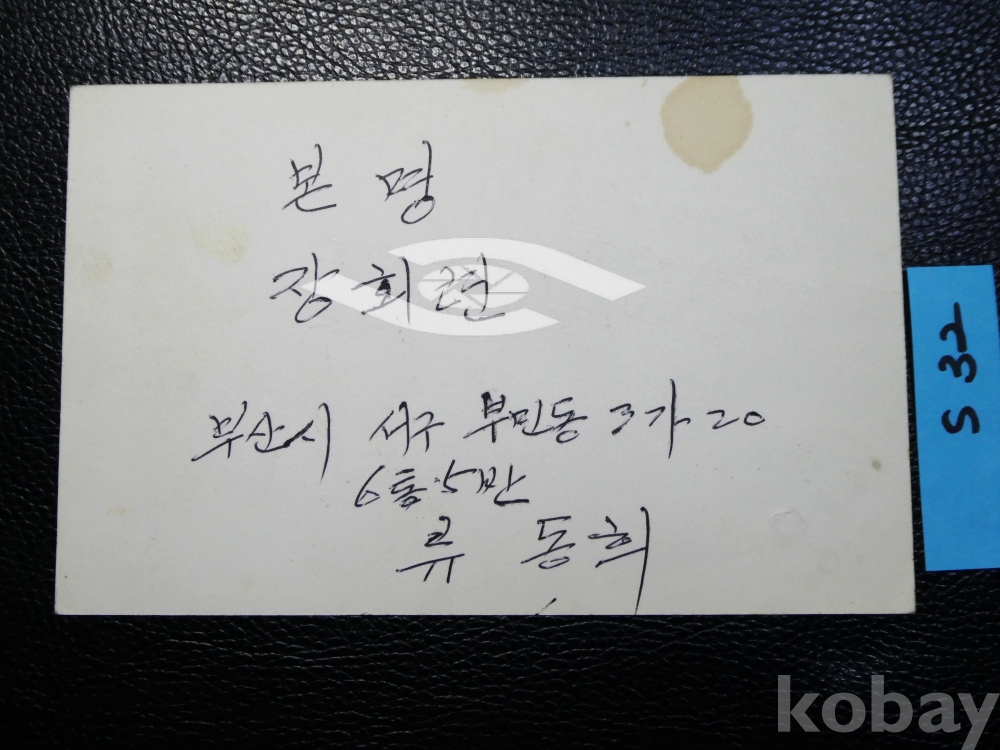 본 명
장회련
부산시 서구 부민동 3가 20
6통.5반
류 동희
S 32
kobay